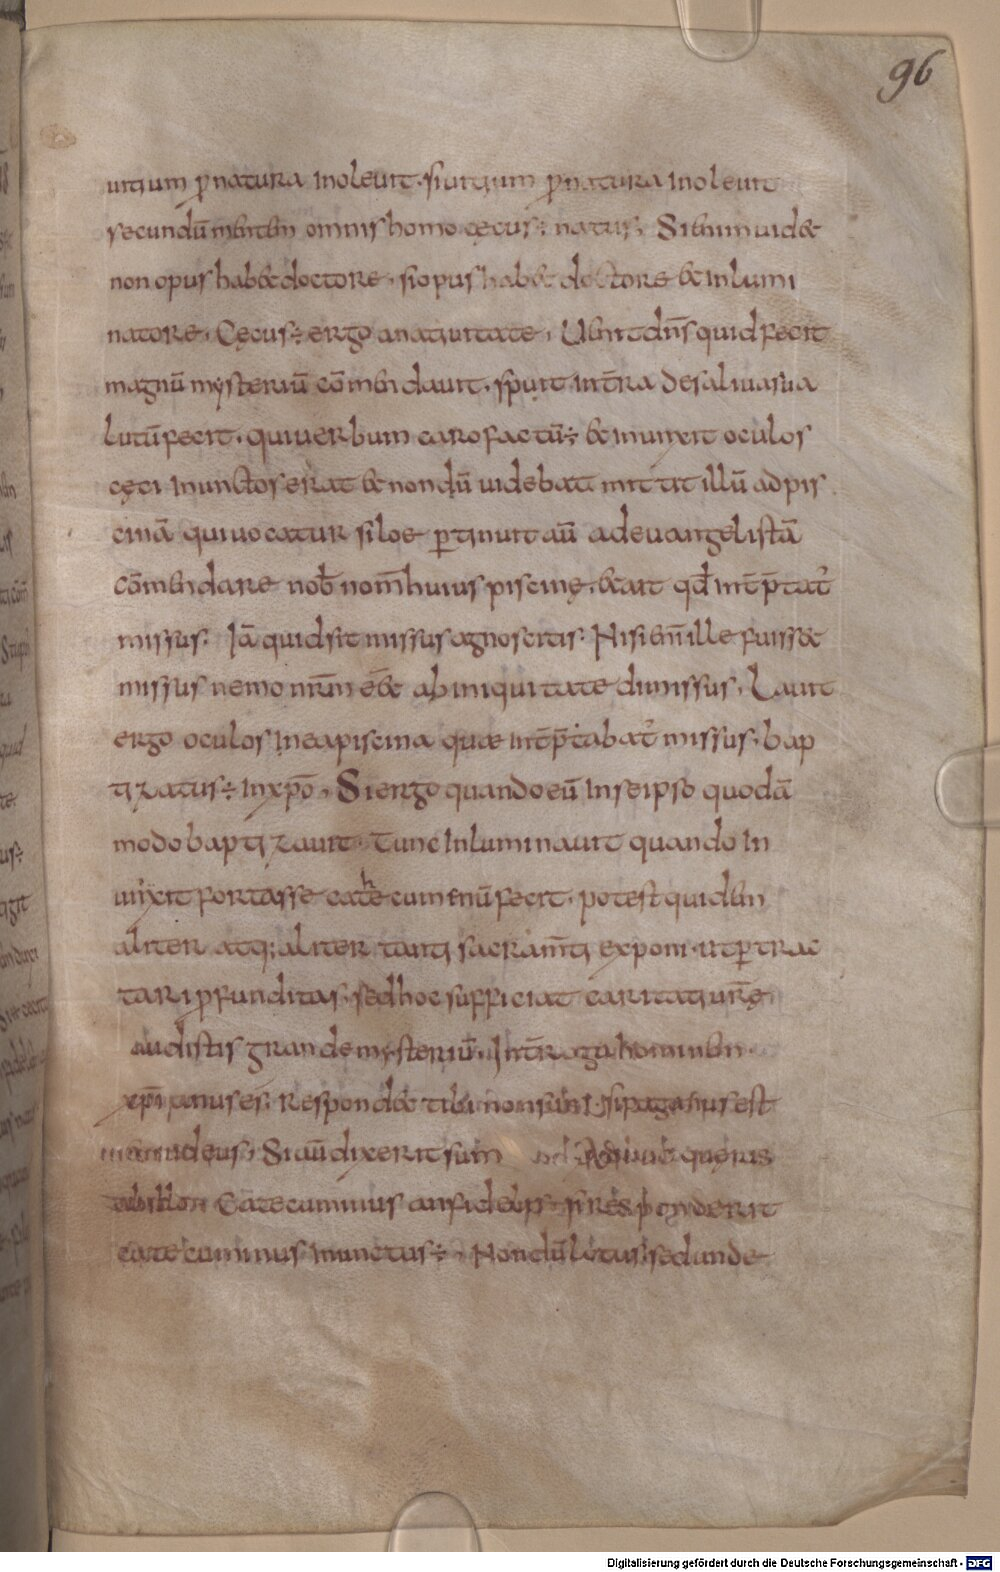 96
uitium p̄natura inoleuit. siuitium p̄natura inoleuit
secundū mentem omnis homo cęcus ÷ natus. Si enim uid&
non opus hab& doctore. si opus hab& doctore & inlumi
natore. Cęcus ÷ ergo a natiuitate. Uenit dn̄s quid fecit
magnū mysteriū cōmendauit. spuit in t̄ra de saliua sua
lutū fecit. qui uerbum caro factū ÷ & inunxit oculos
cęci Inunctos erat & nondū uidebat mittit illū ad pis
cinā qui uocatur siloe p̱tinuit aū ad euangelistā
cōmendare nob̄ nom̄ huius piscinę. & ait qd̄ int̄p̄tat᷑
missus. Iā quid sit missus agnoscitis. Nisi enī ille fuiss&
missus nemo nr̄m eēt ab iniquitate dimissus. Lauit
ergo oculos in ea piscina quæ int̄p̄tabat᷑ missus. bap
tizatus ÷ in xp̄o. Si ergo quando eū in seipso quodā
modo baptizauit. Tunc inluminauit quando in
unxit fortasse catehcuminū fecit. potest quidem
aliter atq; aliter tanti sacram̄ti exponi. ut p̱trac
tari p̱funditas. sed hoc sufficiat caritati ur̄ę
audistis grande mysteriū. Int̄roga hominem
xp̄ianus es. Respond& tibi non sum. si paganus est
iudeus. Si aū dixerit sum adhuc queris
Catecuminus an fidelis. si responderit
catecuminus inunctus ÷. Nondū lotus. sed unde
Digitalisierung gefördert durch die Deutsche Forschungsgemeinschaft - DFG